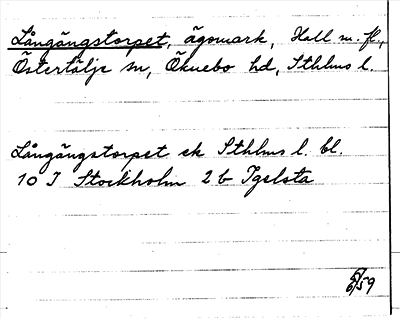 Långängstorpet, ägomark, Hall m. fl,
Östertälje sn, Öknebo hd, Sthlms l.
Långängstorpet ek Sthlms l. bl.
10 I Stockholm 2 b Igelsta
59